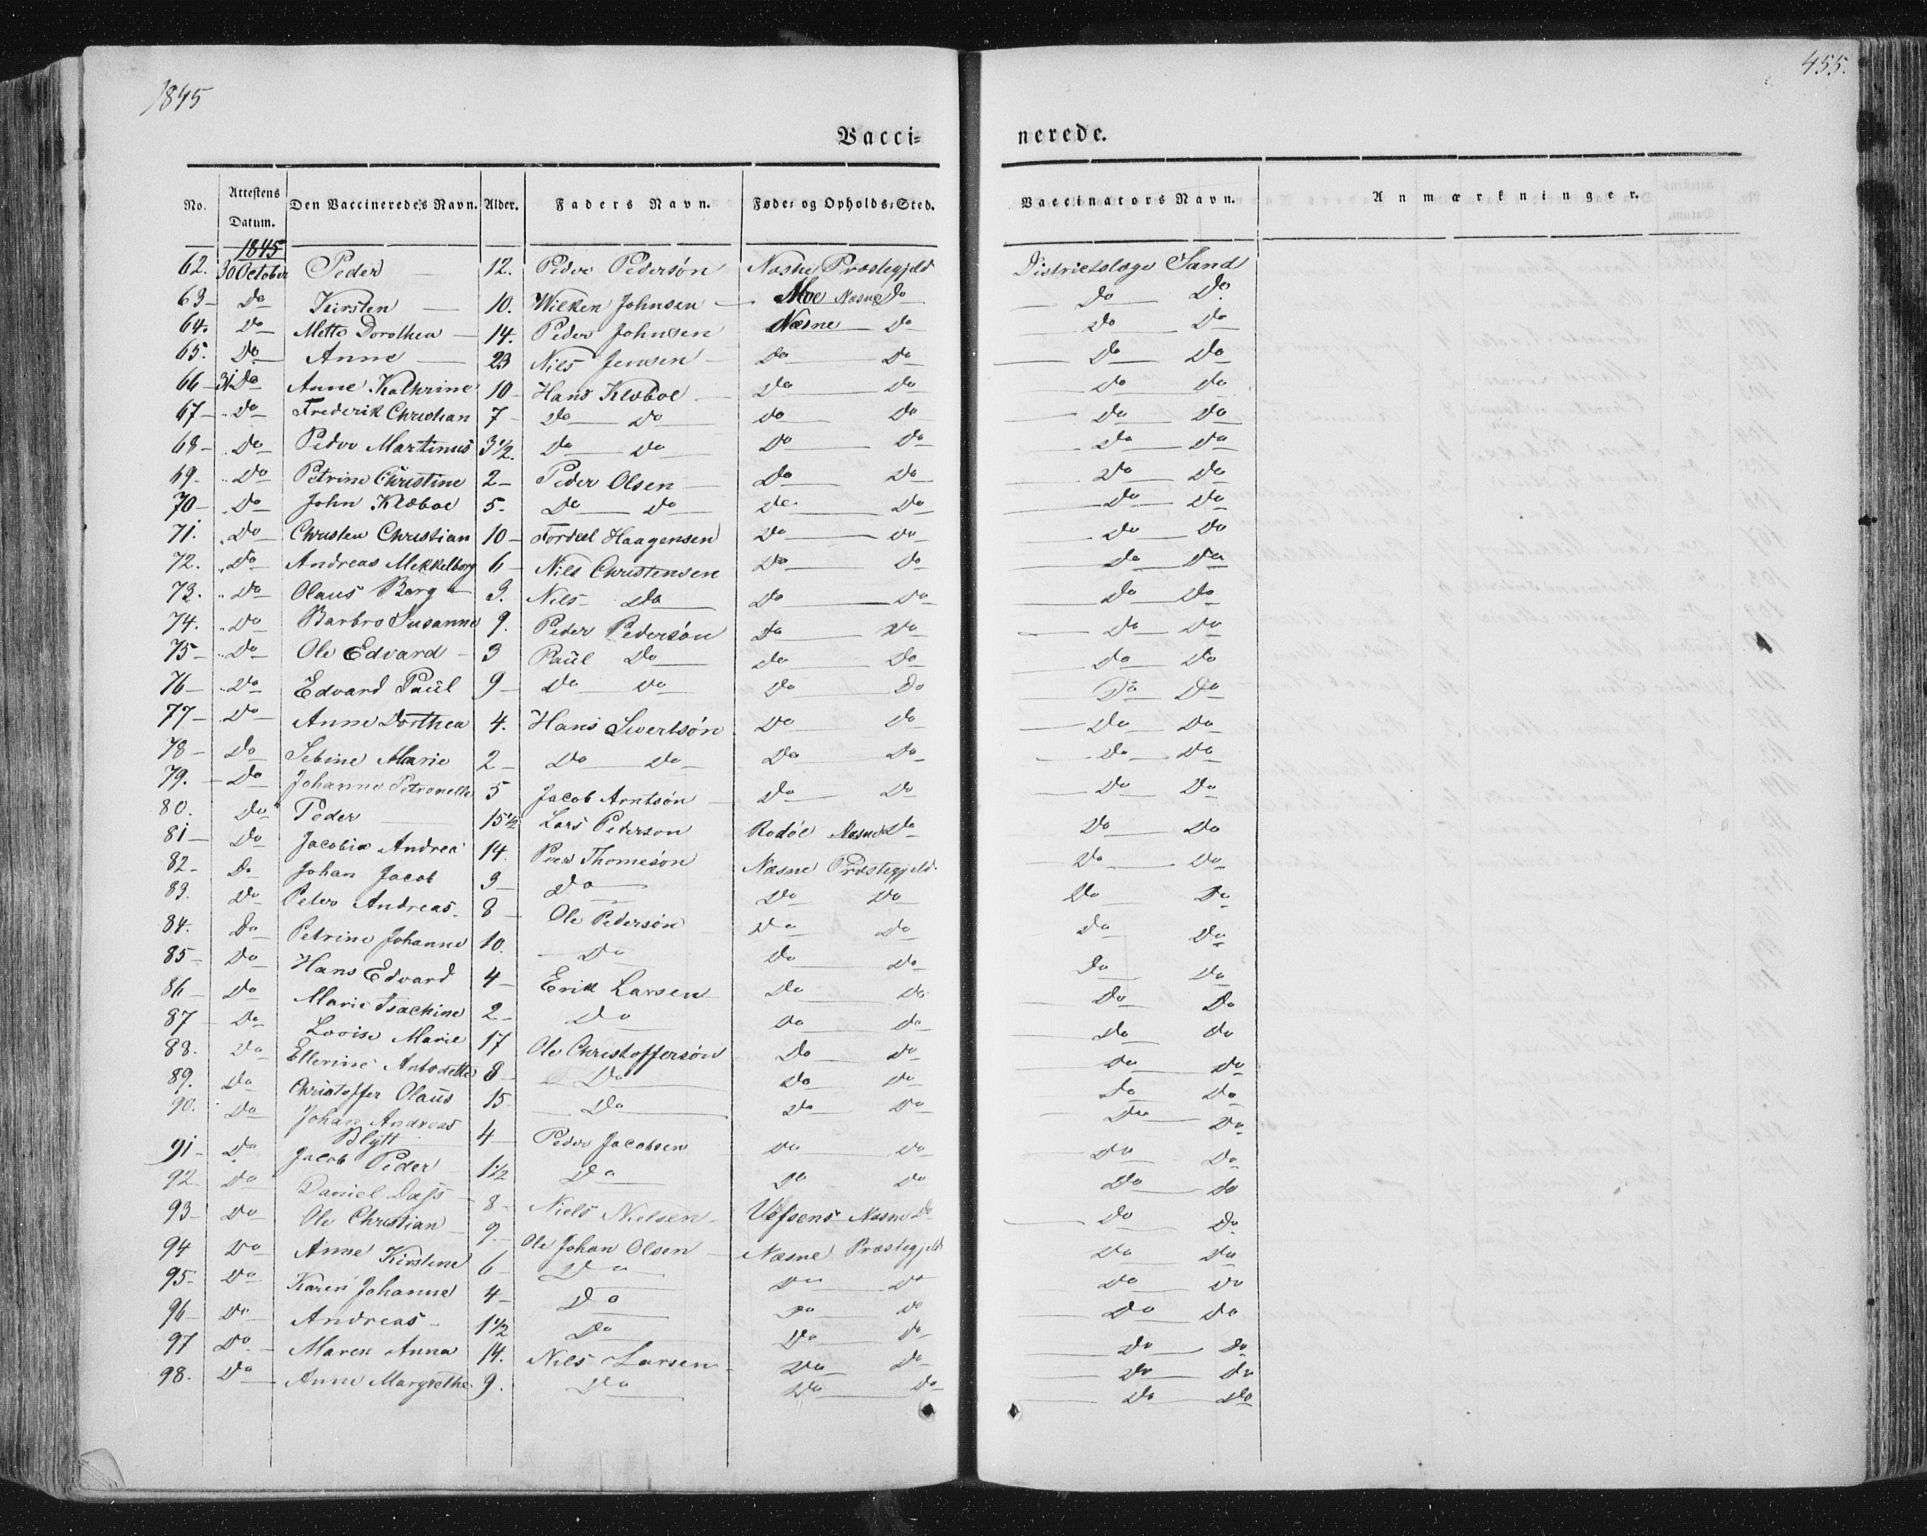 1845
455.
Vacci-
nerede.
No. Attestens Datum. Den Vaccineredes Navn. Alder. Faders Navn. Føde- og Opholds-Sted. Vaccinators Navn. Anmærkninger.
1845
62. 30 October Peder 12. Peder Pedersøn Næsne Præstegjeld Districtslæge Sand
63 Do Kirsten 10. Wilken Johnsen Moe Næsne Do Do Do
64. Do Mette Dorothea 14. Peder Johnsen Næsne Do Do Do
65. Do Anne 23 Nils Jensen Do Do Do Do
66 31 Do Anne Kathrine 10 Hans Klæboe Do Do Do Do
67 Do Frederik Christian 7 Do Do Do Do Do Do
68 Do Peder Martinus 3 1/2. Do Do Do Do Do Do
69. Do Petrine Christine 2 Peder Olsen Do Do Do Do
70 Do John Klæboe 5. Do Do Do Do Do Do
71. Do Christen Christian 10 Haagensen Do Do Do Do
72. Do Andreas Mekkelborg 6 Nils Christensen Do Do Do Do
73. Do Olaus Borg 3. Nils Do Do Do Do Do
74. Do Barbro Susanne 9. Peder Pedersøn Do Do Do Do
75 Do Ole Edvard 3 Paul Do Do Do Do Do
76 Do Edvard Paul 9 Do Do Do Do Do Do
77 Do Anne Dorthea 4. Hans Sivertsøn Do Do Do Do
78 Do Sebine Marie 2 Do Do Do Do Do Do
79. Do Johanne Petronelle 5 Jacob Arntsøn Do Do Do Do
80. Do Peder 15 1/2 Lars Pederson Rødøe Næsne Do Do Do
81 Do Jacobia Andrea 14. Peder Thomesøn Næsne Præstegjeld Do Do
82. Do Johan Jacob 3 Do Do Do Do Do
83. Do Peter Andreas 8 Ole Pedersøn Do Do Do Do
84. Do Petrine Johanne 10. Do Do Do Do Do
85 Do Hans Edvard 4 Erik Larsen Do Do Do Do
86 Do Marie Isachine 2 Do Do Do Do Do
87 Do Lovise Marie 17 Ole Christoffersøn Do Do Do Do
88. Do Ellerine Antonette 8 Do Do Do Do Do
89. Do Christoffer Olaus 15 Do Do Do Do Do
90. Do Johan Andreas Blytt 4 Peder Jacobsen Do Do Do Do
91 Do Jacob Peder 1 1/2 Do Do Do Do Do
92. Do Daniel Dass 8 Niels Nielsen Vefsens Næsne Do Do Do
93 Do Ole Christian 9. Ole Johan Olsen Næsne Præstegjeld Do Do
94 Do Anne Kirstine 6 Do Do Do Do Do
95 Do Karen Johanne 4 Do Do Do Do Do
96 Do Andreas 1 1/2 Do Do Do Do Do
97 Do Maren Anna 14. Nils Larsen Do Do Do Do
98. Do Anne Margrethe 9. Do Do Do Do Do